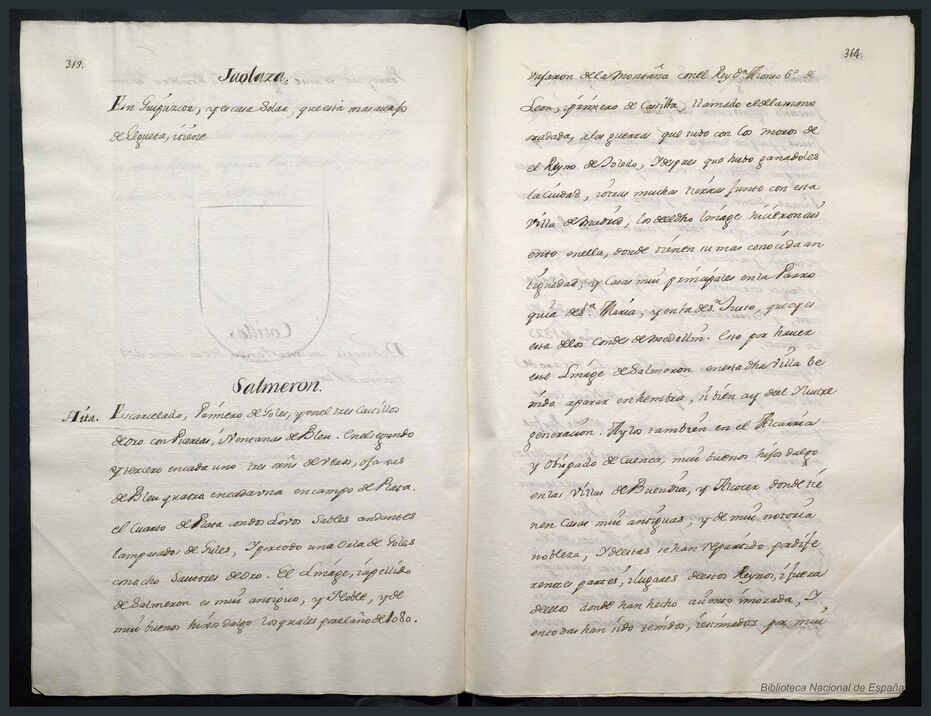 313.
Jaolaza.
En Guipuzcoa, y es casa Solar, que està mas avajo
de Legueta, itiene
Salmeron.
Aita. Escarcelado, Primero de Goles, y en el tres Castillos
de oro con Puertas, i Ventanas de Bleu. En el segundo
y tercero en cada uno tres de Veros, o faxas
de Bleu quatro en cada una en campo de Plata.
el Cuarto de Plata con dos Lovos Sables andantes
lampasados de Goles, y por todo una Orla de Goles
con ocho Sautores de oro. El Linage, i apellido
de Salmeron es mui antiguo, y Noble, y de
mui buenos hijos dalgo los quales por el año de 1080.
314.
vajaron de la Montaña con el Rey dn. Alonso 6º. de
Leon, i primero de Castilla, llamado el de la mano
oradada, a las guerras que tubo con los moros de
el Reyno de Toledo, Y despues que hubo ganadoles
la Ciudad, i otras muchas tierras junto con esta
Villa de Madrid, los de dho Linage hicieron asi
ento en ella, donde tienen su mas conocida an
tiguedad, y Casas mui principales en la Parro
quia de Sta. Maria, y en la de Sn. Justo, que oy es
esta de los Condes de Medellin. Esto por haver
este Linage de Salmeron en esta dha Villa be
nido a parar en hembra, si bien ay de el Ilustre
generacion. Ay los tambien en el Alcarria
y Obispado de Cuenca, mui buenos hijos dalgo
en las Villas de Buendia, y Alcocer donde tie
nen Casas mui antiguas, y de mui notoria
nobleza, Y de estas se han repartido por dife
rentes partes, i lugares de estos Reynos, i fuera
de ellos donde han hecho asiento i morada, Y
en todas han sido tenidos, i estimados por mui
Biblioteca Nacional de España